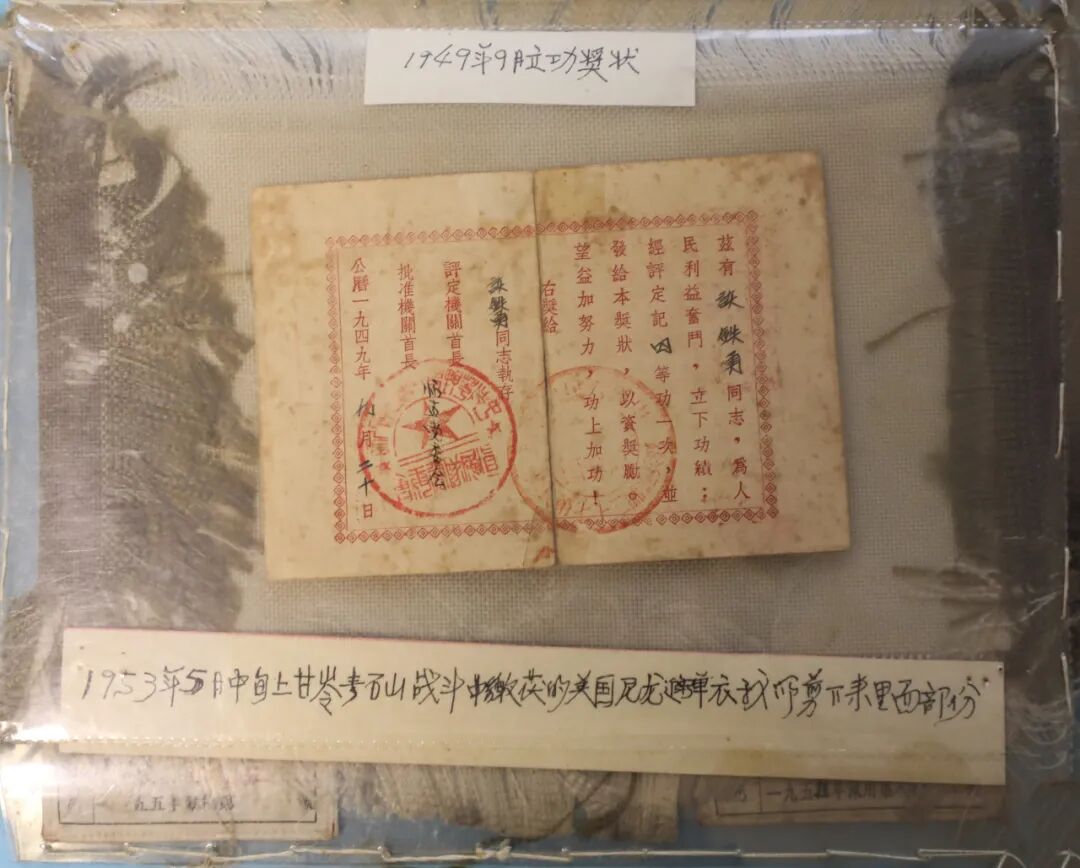 1949年9月立功奬状
兹有 談鉄勇 同志，為人
民利益奮鬥，立下功績；
經評定記 四 等功一次，並
發給本奬狀，以資奬勵。
望益加努力，功上加功！
右奬給
談鉄勇同志執存
評定機關首長
批准機關首長 師黨委会
公曆一九四九年 九月二十日
1953年5月中旬上甘岺青石山战斗中缴获的美国尼龙避弹衣
剪下来里面部份